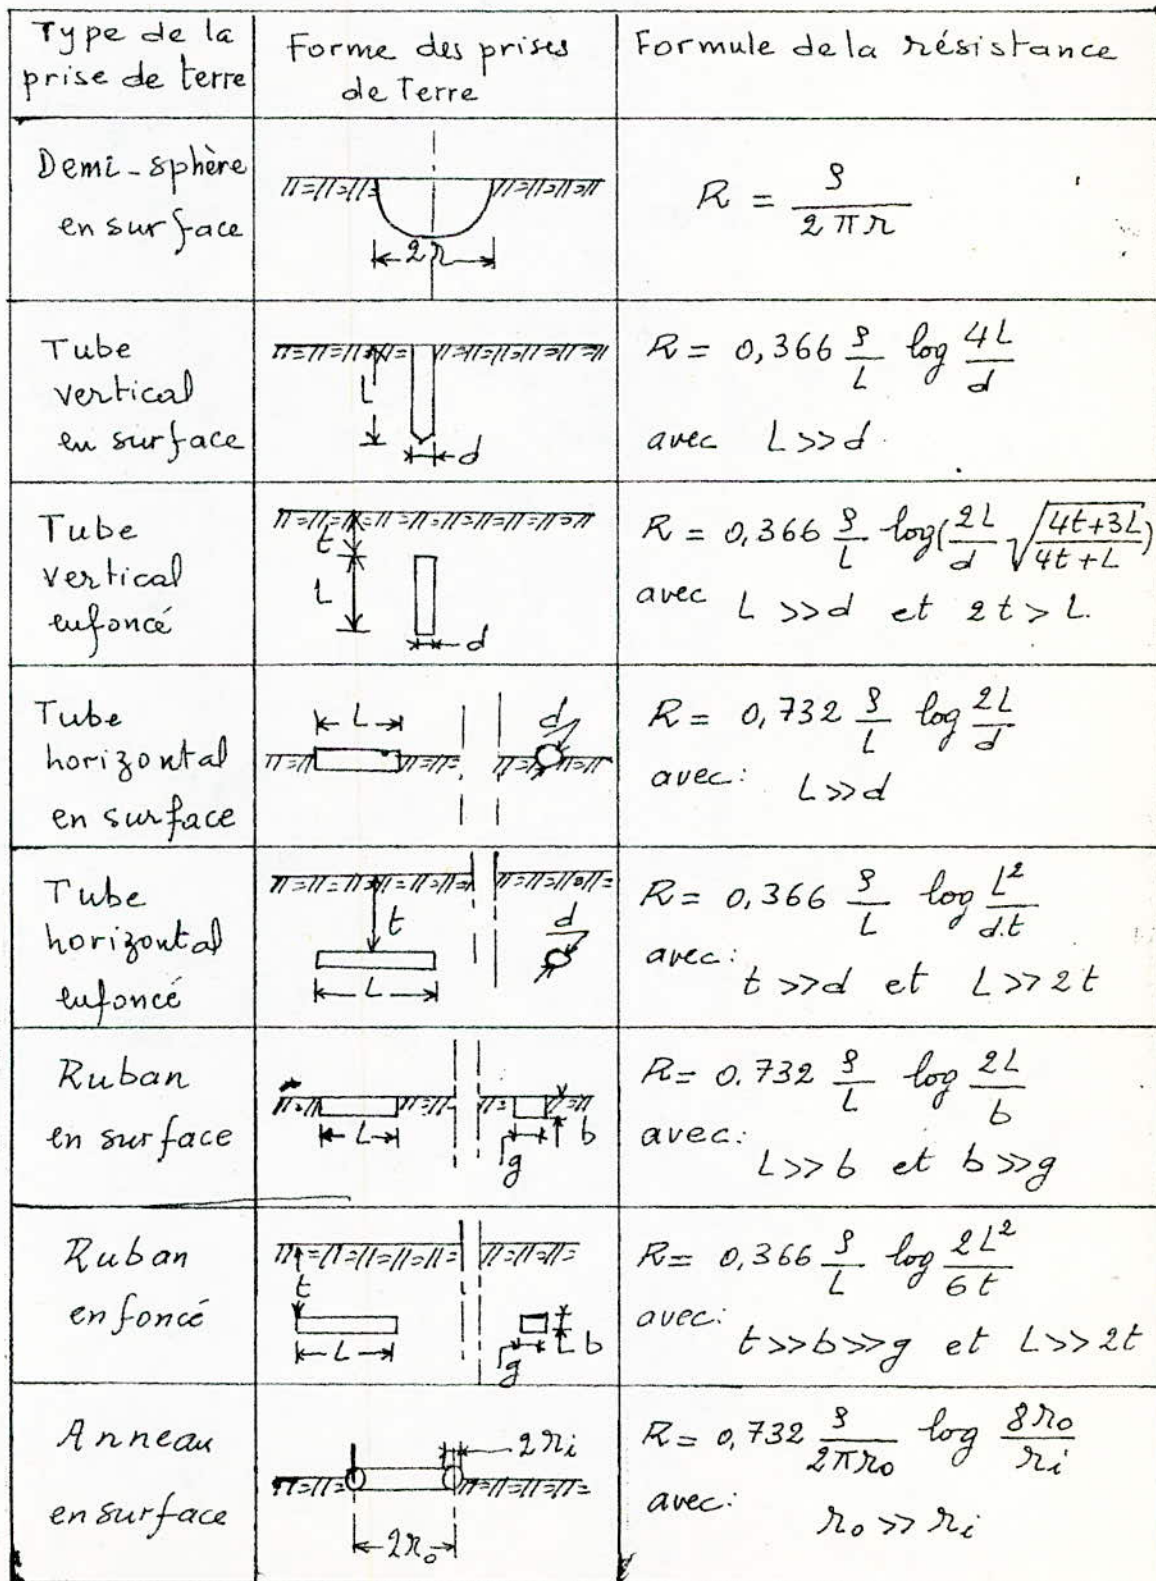 Type de la prise de terre
Forme des prises de Terre
Formule de la résistance
Demi-sphère en surface
2r
R = ρ / 2πr
Tube vertical en surface
L
d
R = 0,366 ρ/L log 4L/d
avec L >> d.
Tube vertical enfoncé
t
L
d
R = 0,366 ρ/L log(2L/d √(4t+3L / 4t+L))
avec L >> d et 2t > L.
Tube horizontal en surface
L
d
R = 0,732 ρ/L log 2L/d
avec: L >> d
Tube horizontal enfoncé
t
L
d
R = 0,366 ρ/L log L²/d.t
avec: t >> d et L >> 2t
Ruban en surface
L
g
b
R = 0.732 ρ/L log 2L/b
avec: L >> b et b >> g
Ruban enfoncé
t
L
g
b
R = 0,366 ρ/L log 2L²/6t
avec: t >> b >> g et L >> 2t
Anneau en surface
2ri
2r₀
R = 0,732 ρ/2πr₀ log 8r₀/ri
avec: r₀ >> ri